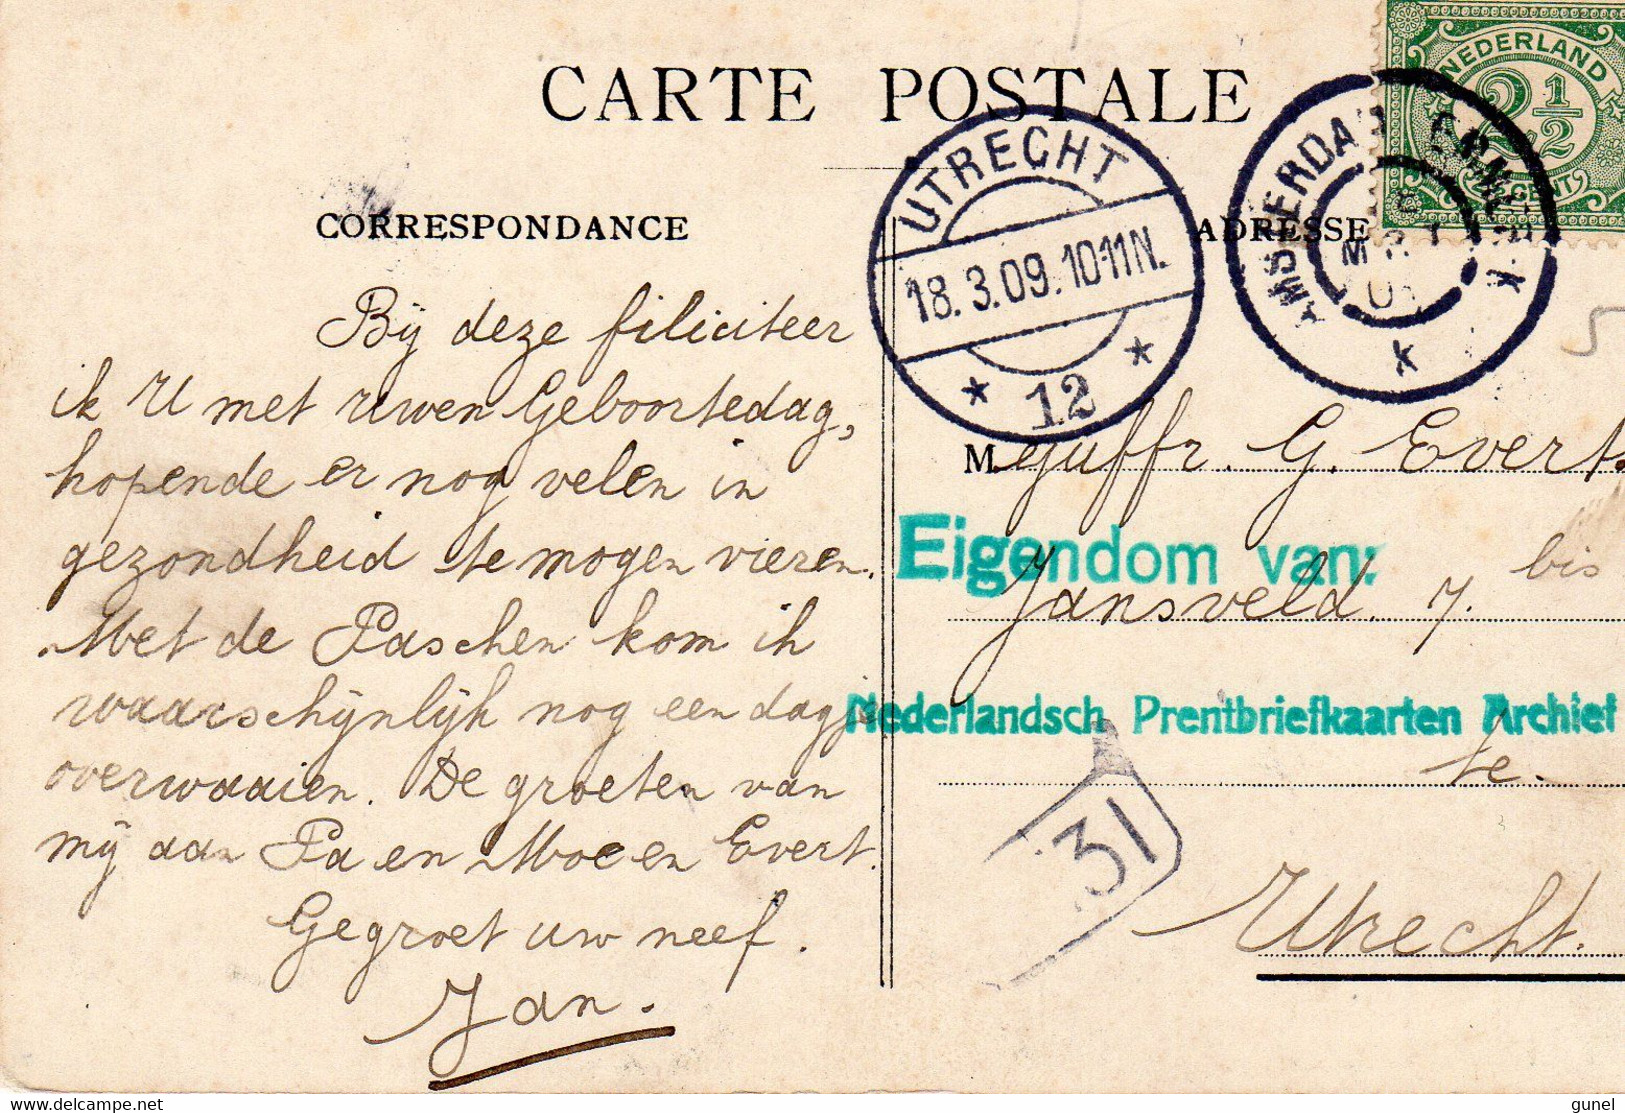 CARTE POSTALE
NEDERLAND
2 1/2
CENT
UTRECHT
18.3.09.10-11N.
* 12 *
AMSTERDAM
CORRESPONDANCE
ADRESSE
Bij deze filiciteer
ik U met uwen Geboortedag,
hopende er nog velen in
gezondheid te mogen vieren.
Met de Paschen kom ik
waarschijnlijk nog een dagje
overwaaien. De groeten van
mij aan Pa en Moe en Evert.
Gegroet uw neef.
Jan.
M. Juffr. G. Evert.
Eigendom van:
Jansveld. 7. bis
Nederlandsch Prentbriefkaarten Archief
te.
31
Utrecht.
www.delcampe.net
gunel